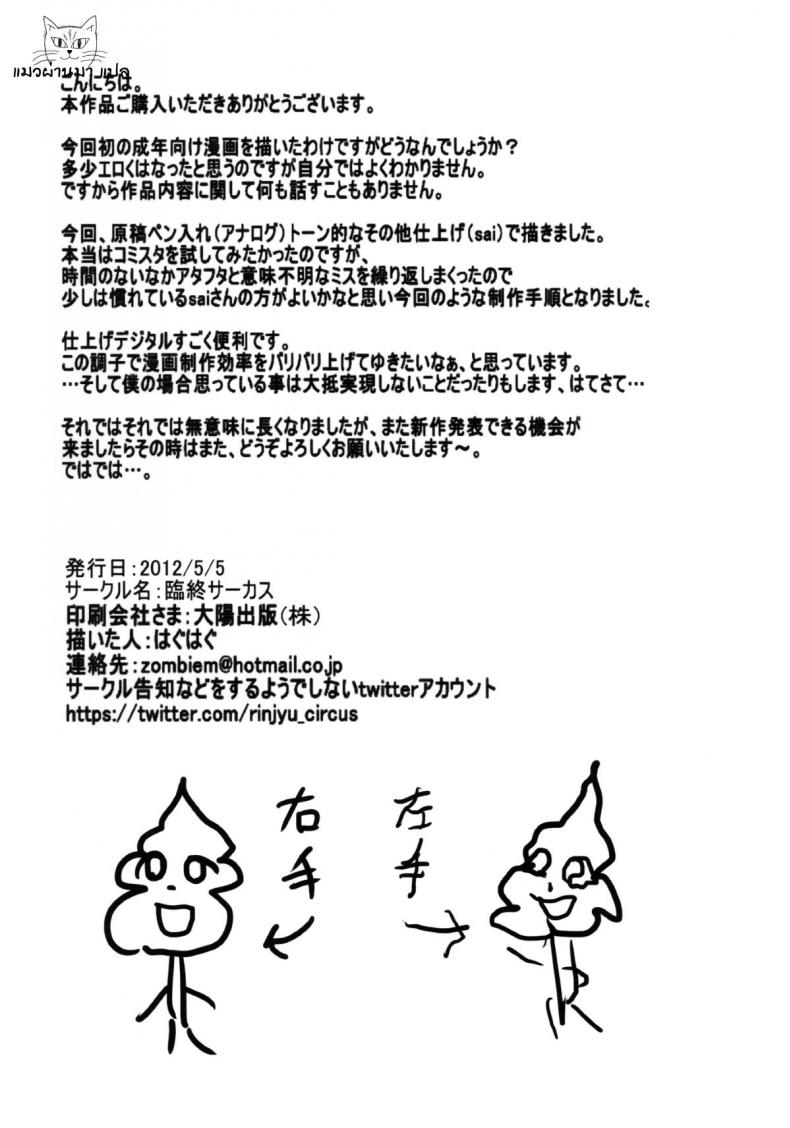 แมวผ่านมา แปล
こんにちは。
本作品ご購入いただきありがとうございます。
今回初の成年向け漫画を描いたわけですがどうなんでしょうか？
多少エロくはなったと思うのですが自分ではよくわかりません。
ですから作品内容に関して何も話すこともありません。
今回、原稿ペン入れ（アナログ）トーン的なその他仕上げ（sai）で描きました。
本当はコミスタを試してみたかったのですが、
時間のないなかアタフタと意味不明なミスを繰り返しまくったので
少しは慣れているsaiさんの方がよいかなと思い今回のような制作手順となりました。
仕上げデジタルすごく便利です。
この調子で漫画制作効率をバリバリ上げてゆきたいなぁ、と思っています。
…そして僕の場合思っている事は大抵実現しないことだったりもします、はてさて…
それではそれでは無意味に長くなりましたが、また新作発表できる機会が
来ましたらその時はまた、どうぞよろしくお願いいたします～。
ではでは…。
発行日：2012/5/5
サークル名：臨終サーカス
印刷会社さま：大陽出版（株）
描いた人：はぐはぐ
連絡先：zombiem@hotmail.co.jp
サークル告知などをするようでしないtwitterアカウント
https://twitter.com/rinjyu_circus
右手
左手